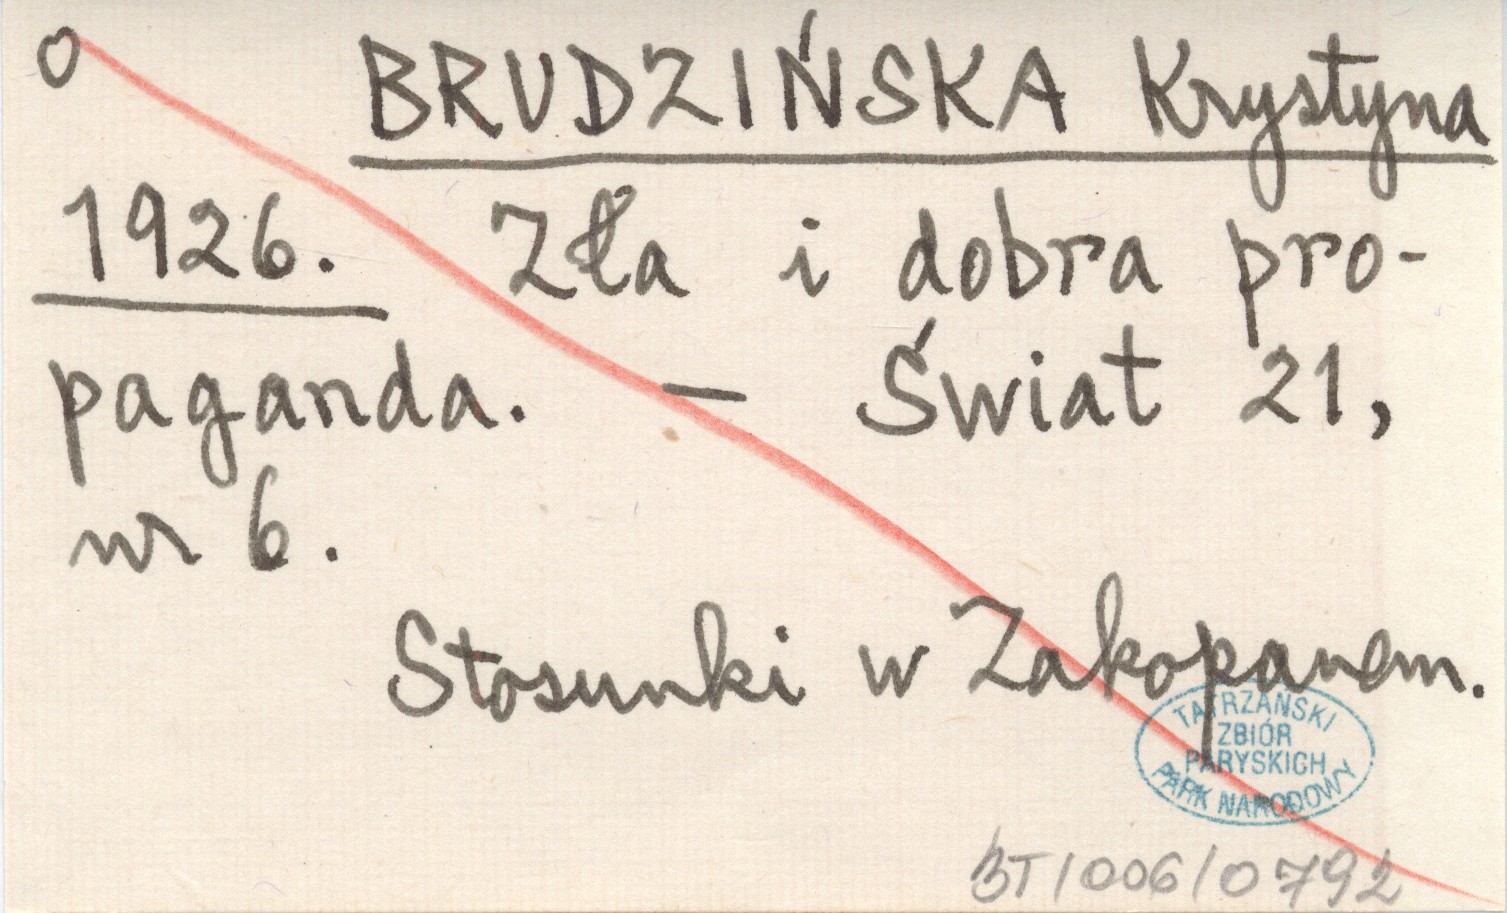 o BRUDZIŃSKA Krystyna
1926. Zła i dobra pro-
paganda. — Świat 21,
nr 6.
Stosunki w Zakopanem.
TATRZAŃSKI
ZBIÓR
PARYSKICH
PARK NARODOWY
BT/006/0792